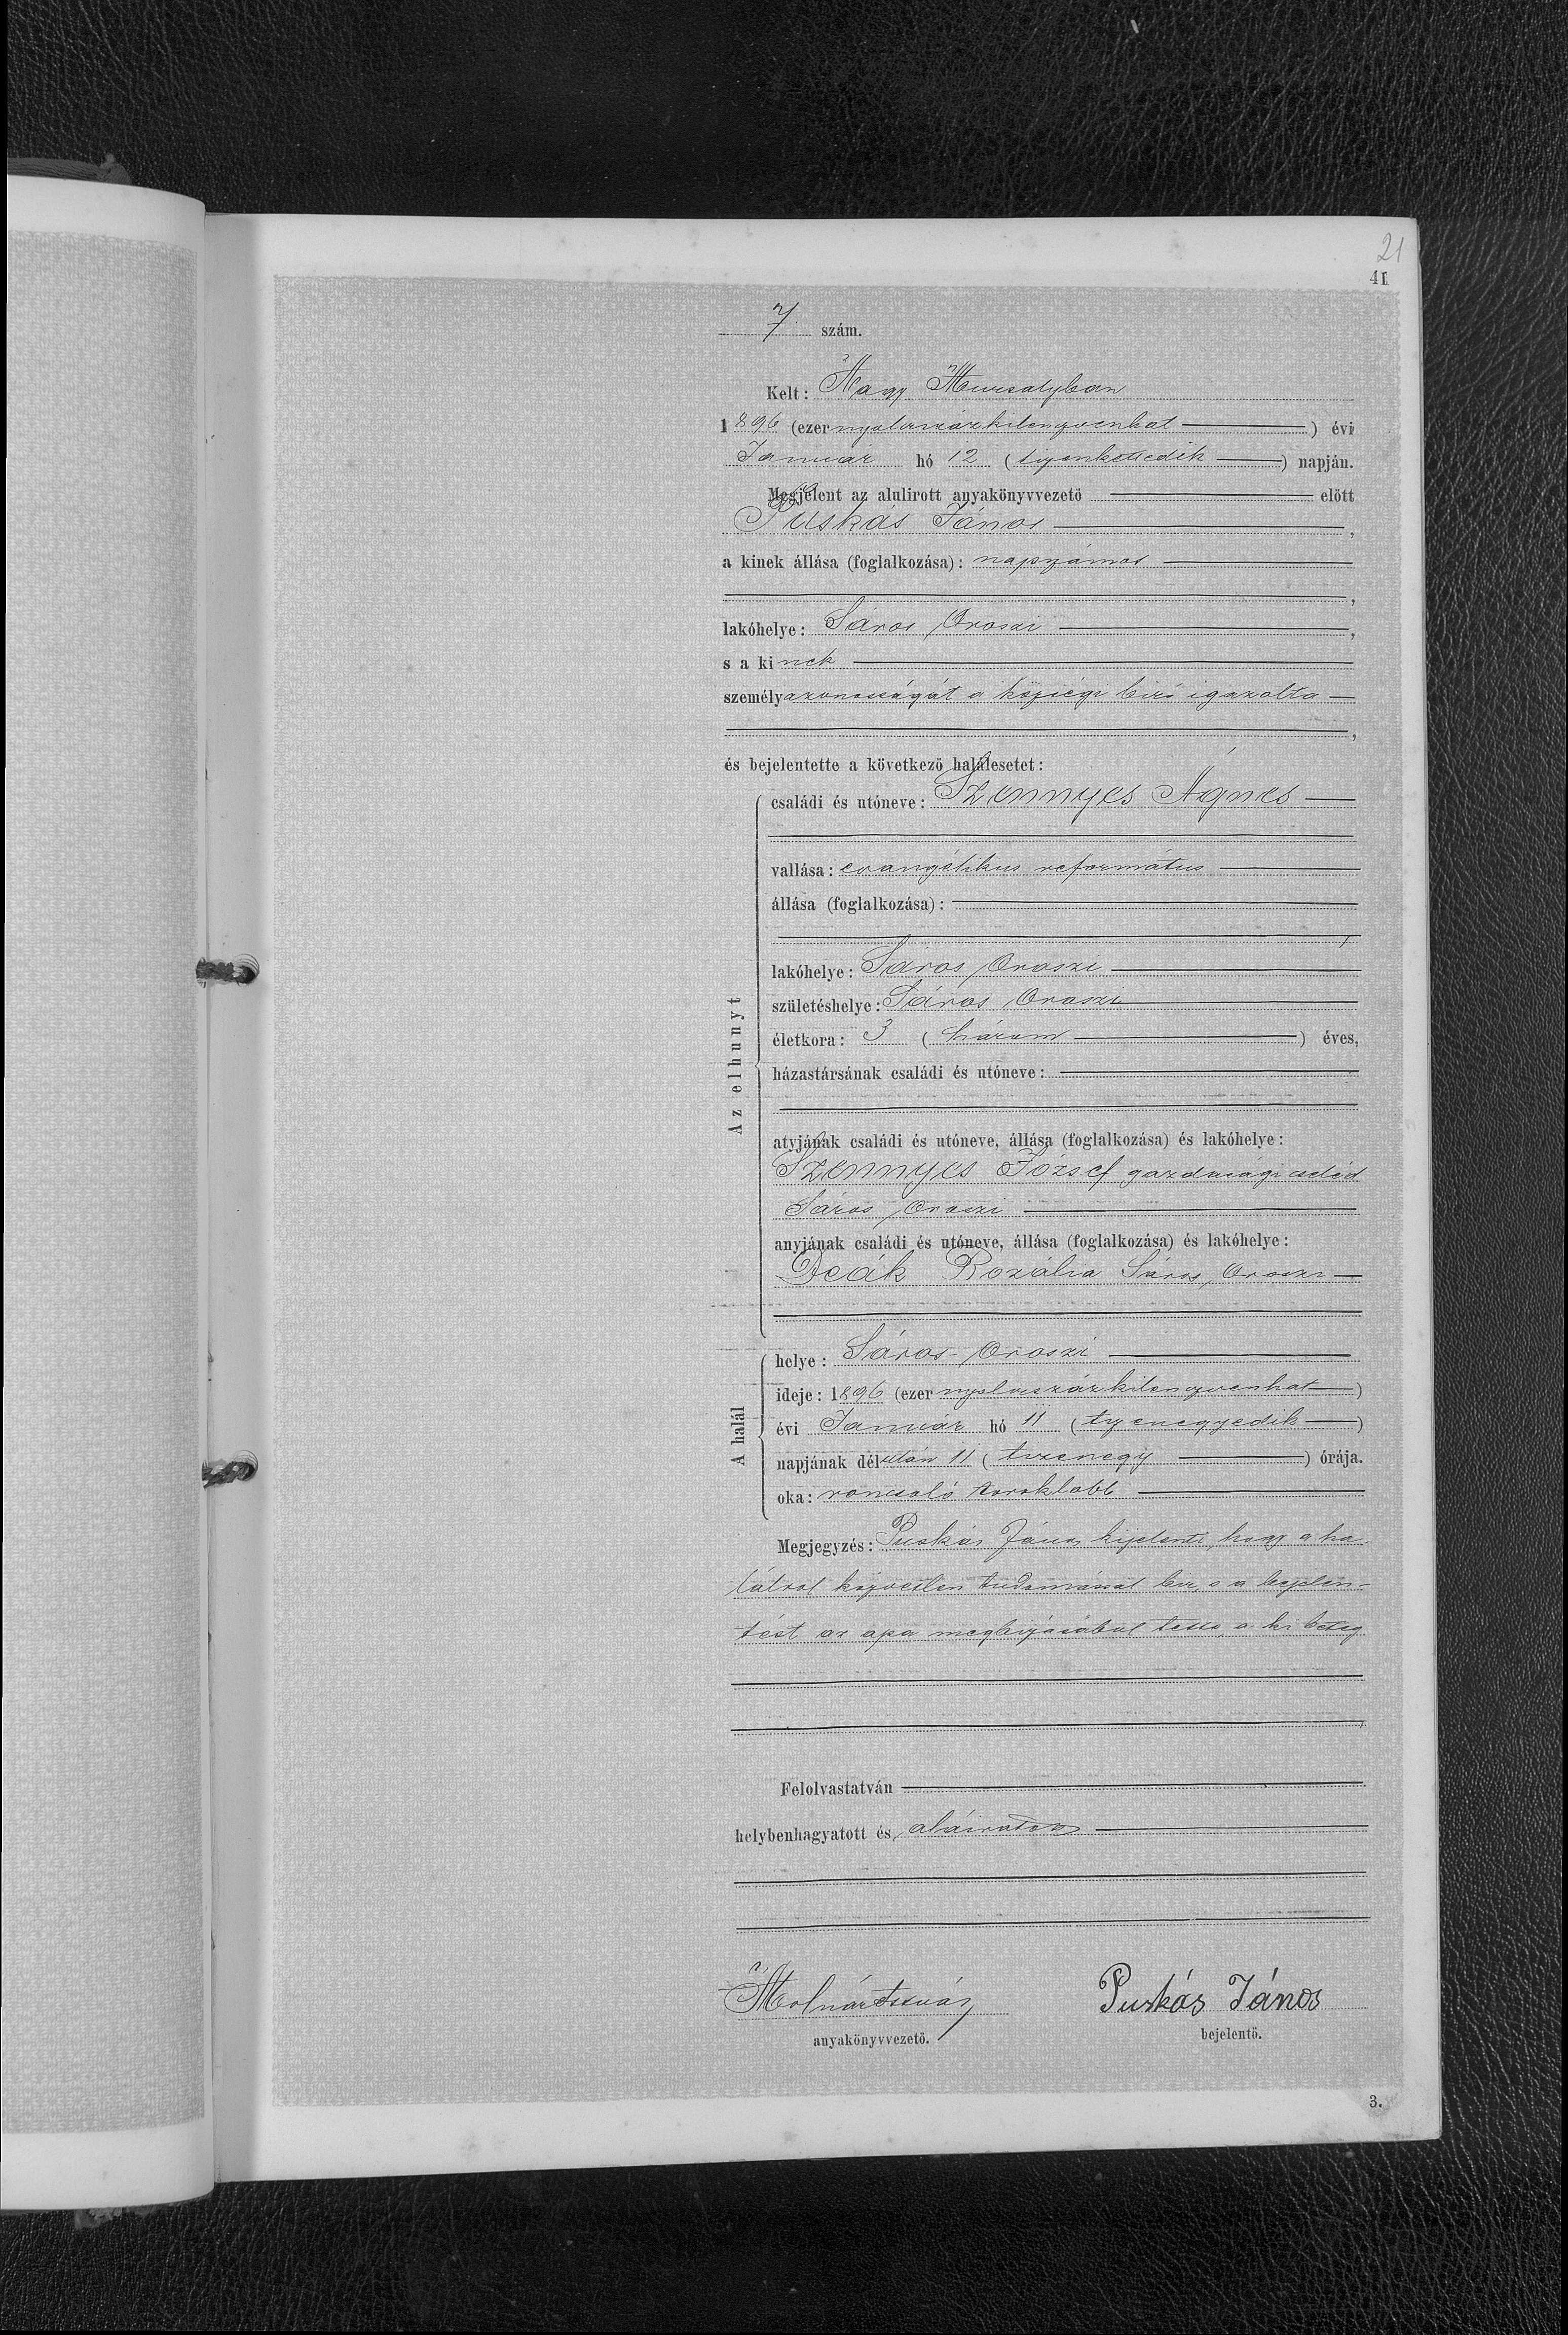 21
41
7 szám.
Kelt: Nagy Muzsalyban
1896 (ezer nyolcszázkilencvenhat) évi
Január hó 12 (tizenkettedik) napján.
Megjelent az alulirott anyakönyvvezető előtt
Puskás János,
a kinek állása (foglalkozása): napszámos
,
lakóhelye: Sáros Oroszi,
s a kinek
személyazonosságát a községi biró igazolta
,
és bejelentette a következő halálesetet:
Az elhunyt
családi és utóneve: Szennyes Ágnes
vallása: evangélikus református
állása (foglalkozása):
,
lakóhelye: Sáros Oroszi
születéshelye: Sáros Oroszi
életkora: 3 (három) éves,
házastársának családi és utóneve:
atyjának családi és utóneve, állása (foglalkozása) és lakóhelye:
Szennyes József gazdasági cseléd
Sáros Oroszi
anyjának családi és utóneve, állása (foglalkozása) és lakóhelye:
Deák Rozália Sáros Oroszi
A halál
helye: Sáros-Oroszi
ideje: 1896 (ezer nyolcszázkilencvenhat)
évi Január hó 11 (tizenegyedik)
napjának délután 11 (tizenegy) órája.
oka: roncsoló toroklobb
Megjegyzés: Puskás János kijelenti, hogy a ha-
lálról közvetlen tudomással bir, s a bejelen-
tést az apa megbizásából tette, a ki beteg
Felolvastatván
helybenhagyatott és aláiratott
Molnár István
Puskás János
anyakönyvvezető.
bejelentő.
3.